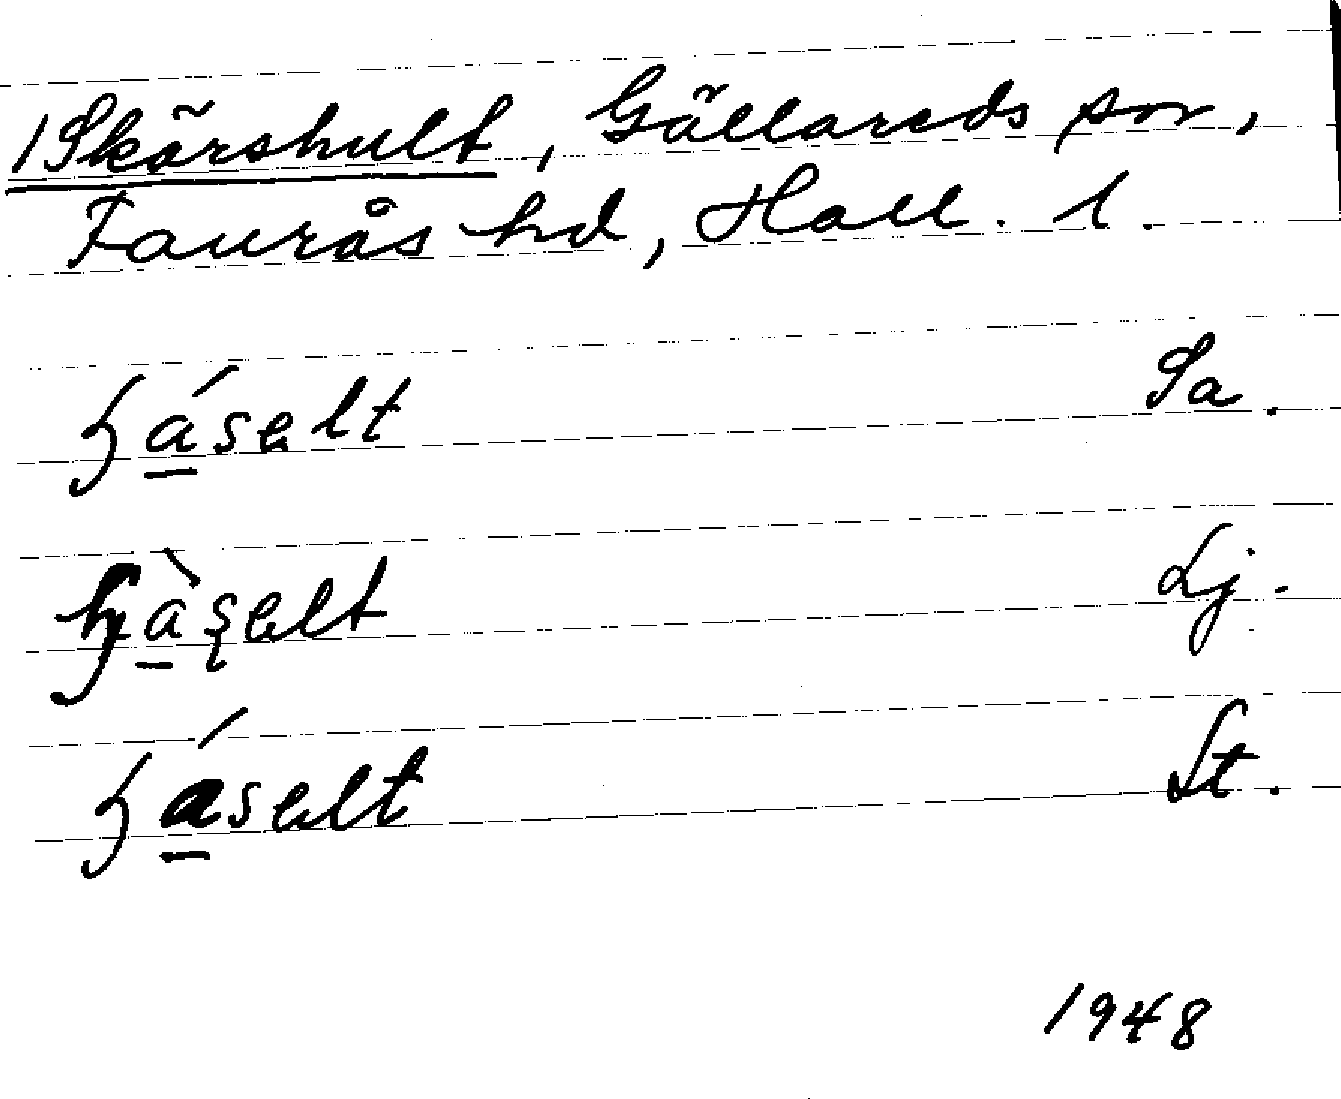 /Skärshult, Gällareds sn,
Faurås hd, Hall. l.
ɧá̲səlt Sa.
ɧà̲ʂəlt Lj.
ɧá̲səlt St.
1948